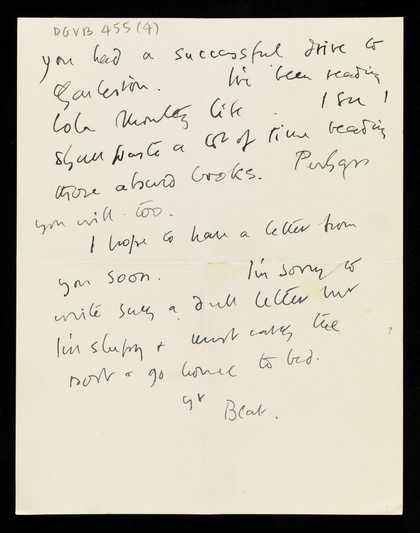 DGVB 455 (4)
you had a successful drive to
Charleston. I've been reading
Lola Montez life. I see I
shall waste a lot of time reading
those absurd books. Perhaps
you will too.
I hope to have a letter from
you soon. I'm sorry to
write such a dull letter but
I'm sleepy + must catch the
post + go home to bed.
yr
Beat.